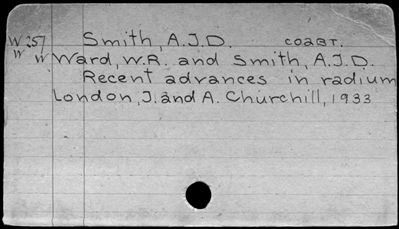 W257 Smith, A.J.D. COABT.
W W Ward, W.R. and Smith, A.J.D.
Recent advances in radium
London, J. and A. Churchill, 1933